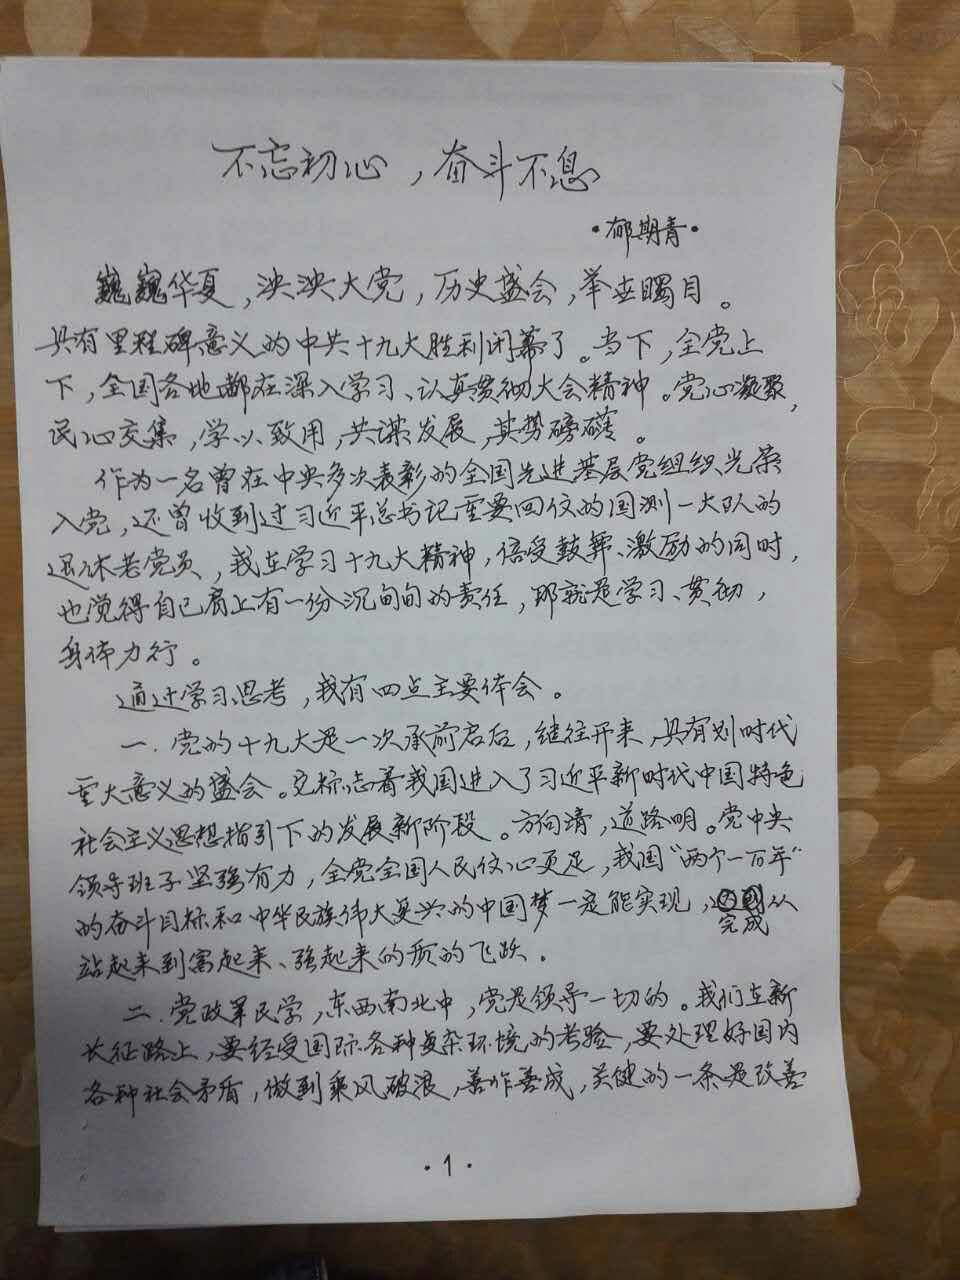 不忘初心，奋斗不息
·郁期青·
巍巍华夏，泱泱大党，历史盛会，举世瞩目。
具有里程碑意义的中共十九大胜利闭幕了。当下，全党上
下，全国各地都在深入学习、认真贯彻大会精神。党心凝聚，
民心交集，学以致用，共谋发展，其势磅礴。
作为一名曾在中央多次表彰的全国先进基层党组织光荣
入党，还曾收到过习近平总书记重要回信的国测一大队的
退休老党员，我在学习十九大精神，倍受鼓舞、激励的同时，
也觉得自己肩上有一份沉甸甸的责任，那就是学习、贯彻，
身体力行。
通过学习思考，我有四点主要体会。
一．党的十九大是一次承前启后，继往开来，具有划时代
重大意义的盛会。它标志着我国进入了习近平新时代中国特色
社会主义思想指引下的发展新阶段。方向清，道路明。党中央
领导班子坚强有力，全党全国人民信心更足，我国“两个一百年”
的奋斗目标和中华民族伟大复兴的中国梦一定能实现，从
完成
站起来到富起来、强起来的质的飞跃。
二．党政军民学，东西南北中，党是领导一切的。我们在新
长征路上，要经受国际各种复杂环境的考验，要处理好国内
各种社会矛盾，做到乘风破浪，善作善成，关健的一条是改善
·1·